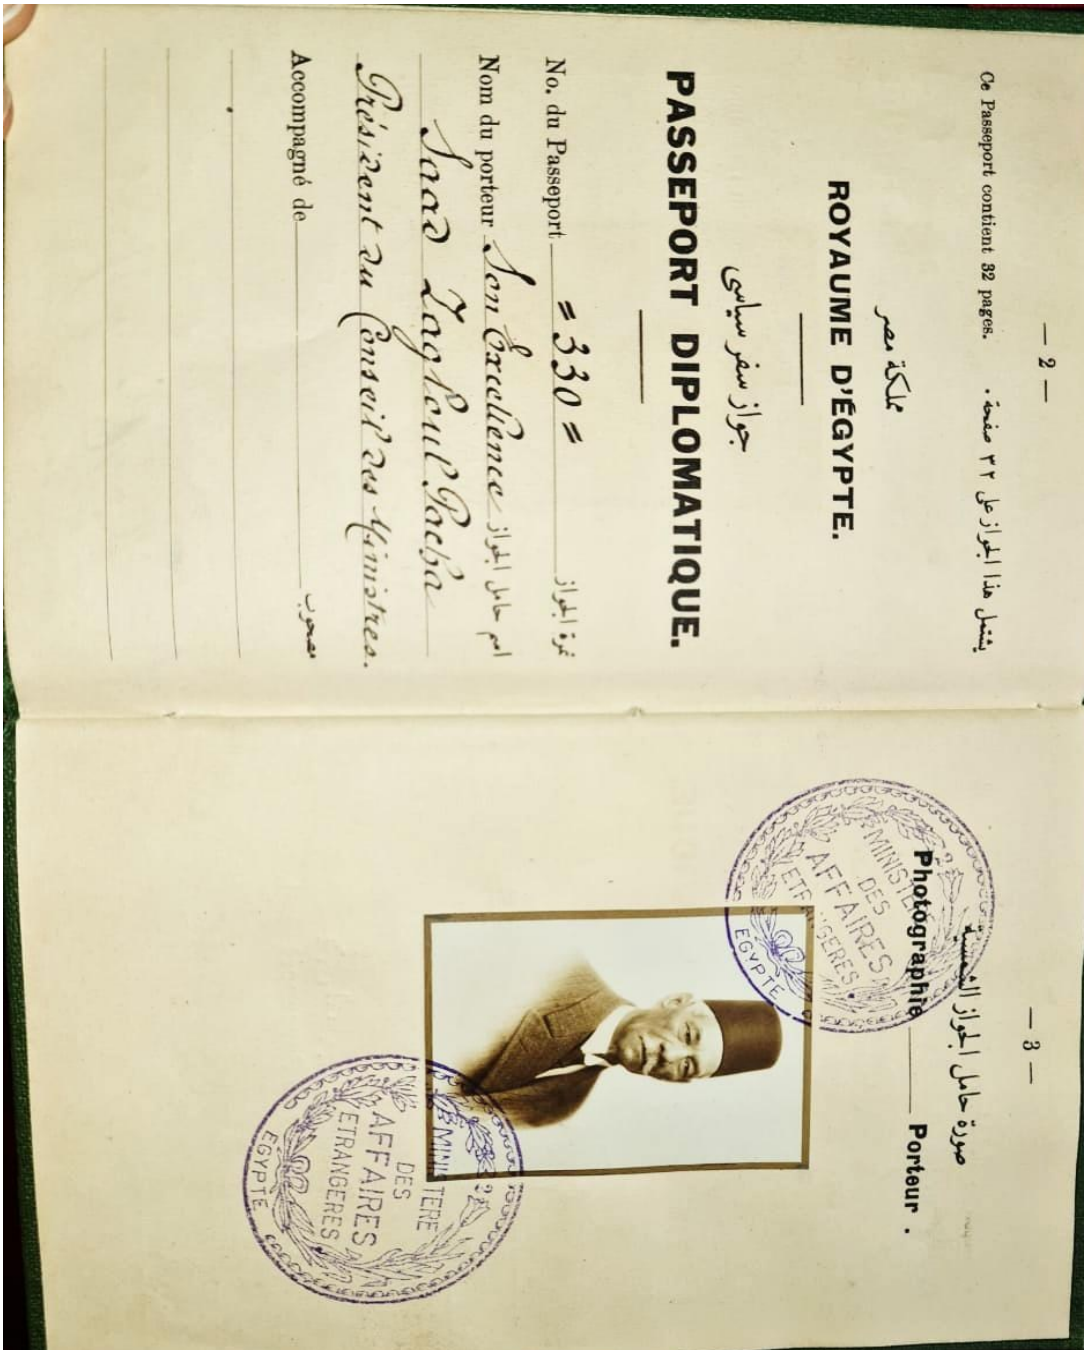 — 2 —
Ce Passeport contient 32 pages. يشتمل هذا الجواز على ٣٢ صفحة .
مملكة مصر
ROYAUME D'ÉGYPTE.
جواز سفر سياسى
PASSEPORT DIPLOMATIQUE.
No. du Passeport = 330 = نمرة الجواز
Nom du porteur Son Excellence اسم حامل الجواز
Saad Zaghloul Pacha
Président du Conseil des Ministres.
Accompagné de مصحوب
— 3 —
صورة حامل الجواز الشمسية
Photographie Porteur .
MINISTERE
DES
AFFAIRES
ETRANGERES
EGYPTE
MINISTERE
DES
AFFAIRES
ETRANGERES
EGYPTE